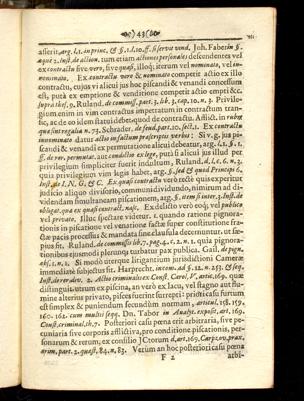 43
asserit, arg. l. 1. in princ. & §. 1. l. 10. ff. si servus vend. Joh. Faber in §.
æque 2. Inst. de action. tum etiam actiones personales descendentes vel
ex contractu sive vero, sive quasi, illoq; iterum vel nominato, vel in-
nominato. Ex contractu vero & nominato competit actio ex illo
contractu, cujus vi alicui jus hoc piscandi & venandi concessum
est, puta ex emptione & venditione competit actio empti &c.
Ruland. de commiss. part. 3. lib. 3. cap. 10. n. 3. Privile-
gium enim in vim contractus imperatum in contractum trans-
it, ac de eo idem statui debet, quod de contractu. Afflict. in rubr.
quæ sint regalia n. 73. Schrader. de feud. part. 10. sect. 1. Ex contractu
innominato datur actio in factum præscriptis verbis: Si v. g. jus pi-
scandi & venandi ex permutatione alicui debeatur, arg. l. 5. §. 1.
ff. de rer. permutat. aut condictio ex lege, puta si alicui jus illud per
privilegium simpliciter fuerit indultum, Ruland. d. l. c. 6. n. 3.
quia privilegium vim legis habet, arg. §. sed & quod Principi 6.
Inst. de I. N. G. & C. Ex quasi contractu vero recte quis experitur
judicio aliquo divisorio, communi dividundo, nimirum ad di-
videndam simultaneam piscationem, arg. §. item si inter 3. Inst. de
obligat. quæ ex quasi contract. nasc. Ex delicto vero eoq; vel publico
vel privato. Illuc spectare videtur. 1. quando ratione pignora-
tionis in piscatione vel venatione factæ super constitutione fra-
ctæ pacis processus & mandata sine clausula decernuntur, ut sæ-
pius fit. Ruland. de commissis lib. 7. pag. 4. c. 2. n. 1. quia pignora-
tionibus ejusmodi plerunq; turbatur pax publica. Gail. de pign.
obs. 1. n. 1. Si modo uterque litigantium jurisdictioni Cameræ
immediate subjectus sit. Harprecht. in comm. ad §. 12. n. 253. Et seq.
Inst. de rer. div. 2. Actio criminalis ex Const. Carol. V. artic. 169. quæ
distinguit: utrum ex piscina, an vero ex lacu, vel stagno aut flu-
mine alterius privato, pisces fuerint surrepti: priori casu furtum
est simplex & puniendum secundum normam, articul. 158. 159.
160. 162. cum multis seqq. Dn. Tabor in Analyt. exposit. art. 169.
Const. criminal. th. 7. Posteriori casu pœna erit arbitraria, sive pe-
cuniaria sive corporis afflictiva, pro conditione piscationis, per-
sonarum & rerum, ex consilio JCtorum d. art. 169. Carpzov. prax.
crim. part. 2. quæst. 84. n. 83. Verum an hoc posteriori casu pœna
F 2
arbi-